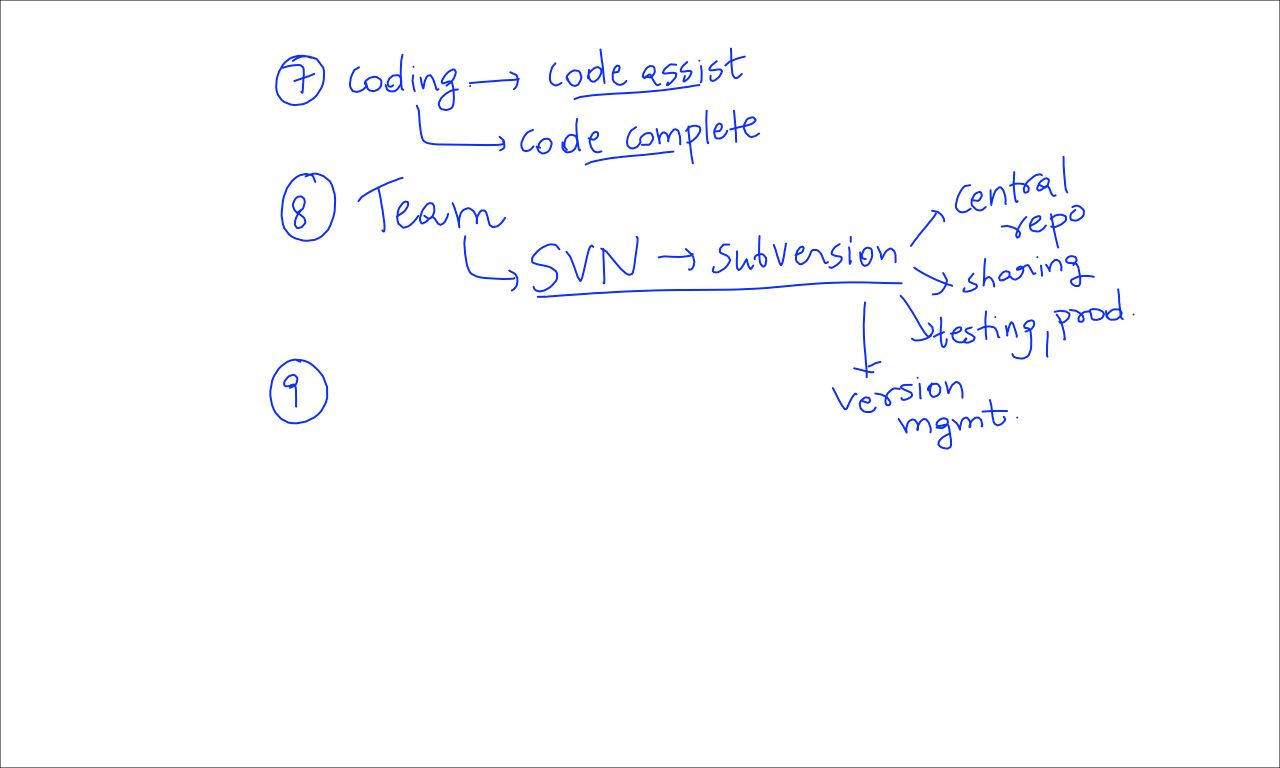 7 Coding → Code assist
→ Code complete
8 Team
→ SVN → Subversion
Central
repo
sharing
testing, prod.
Version
mgmt.
9